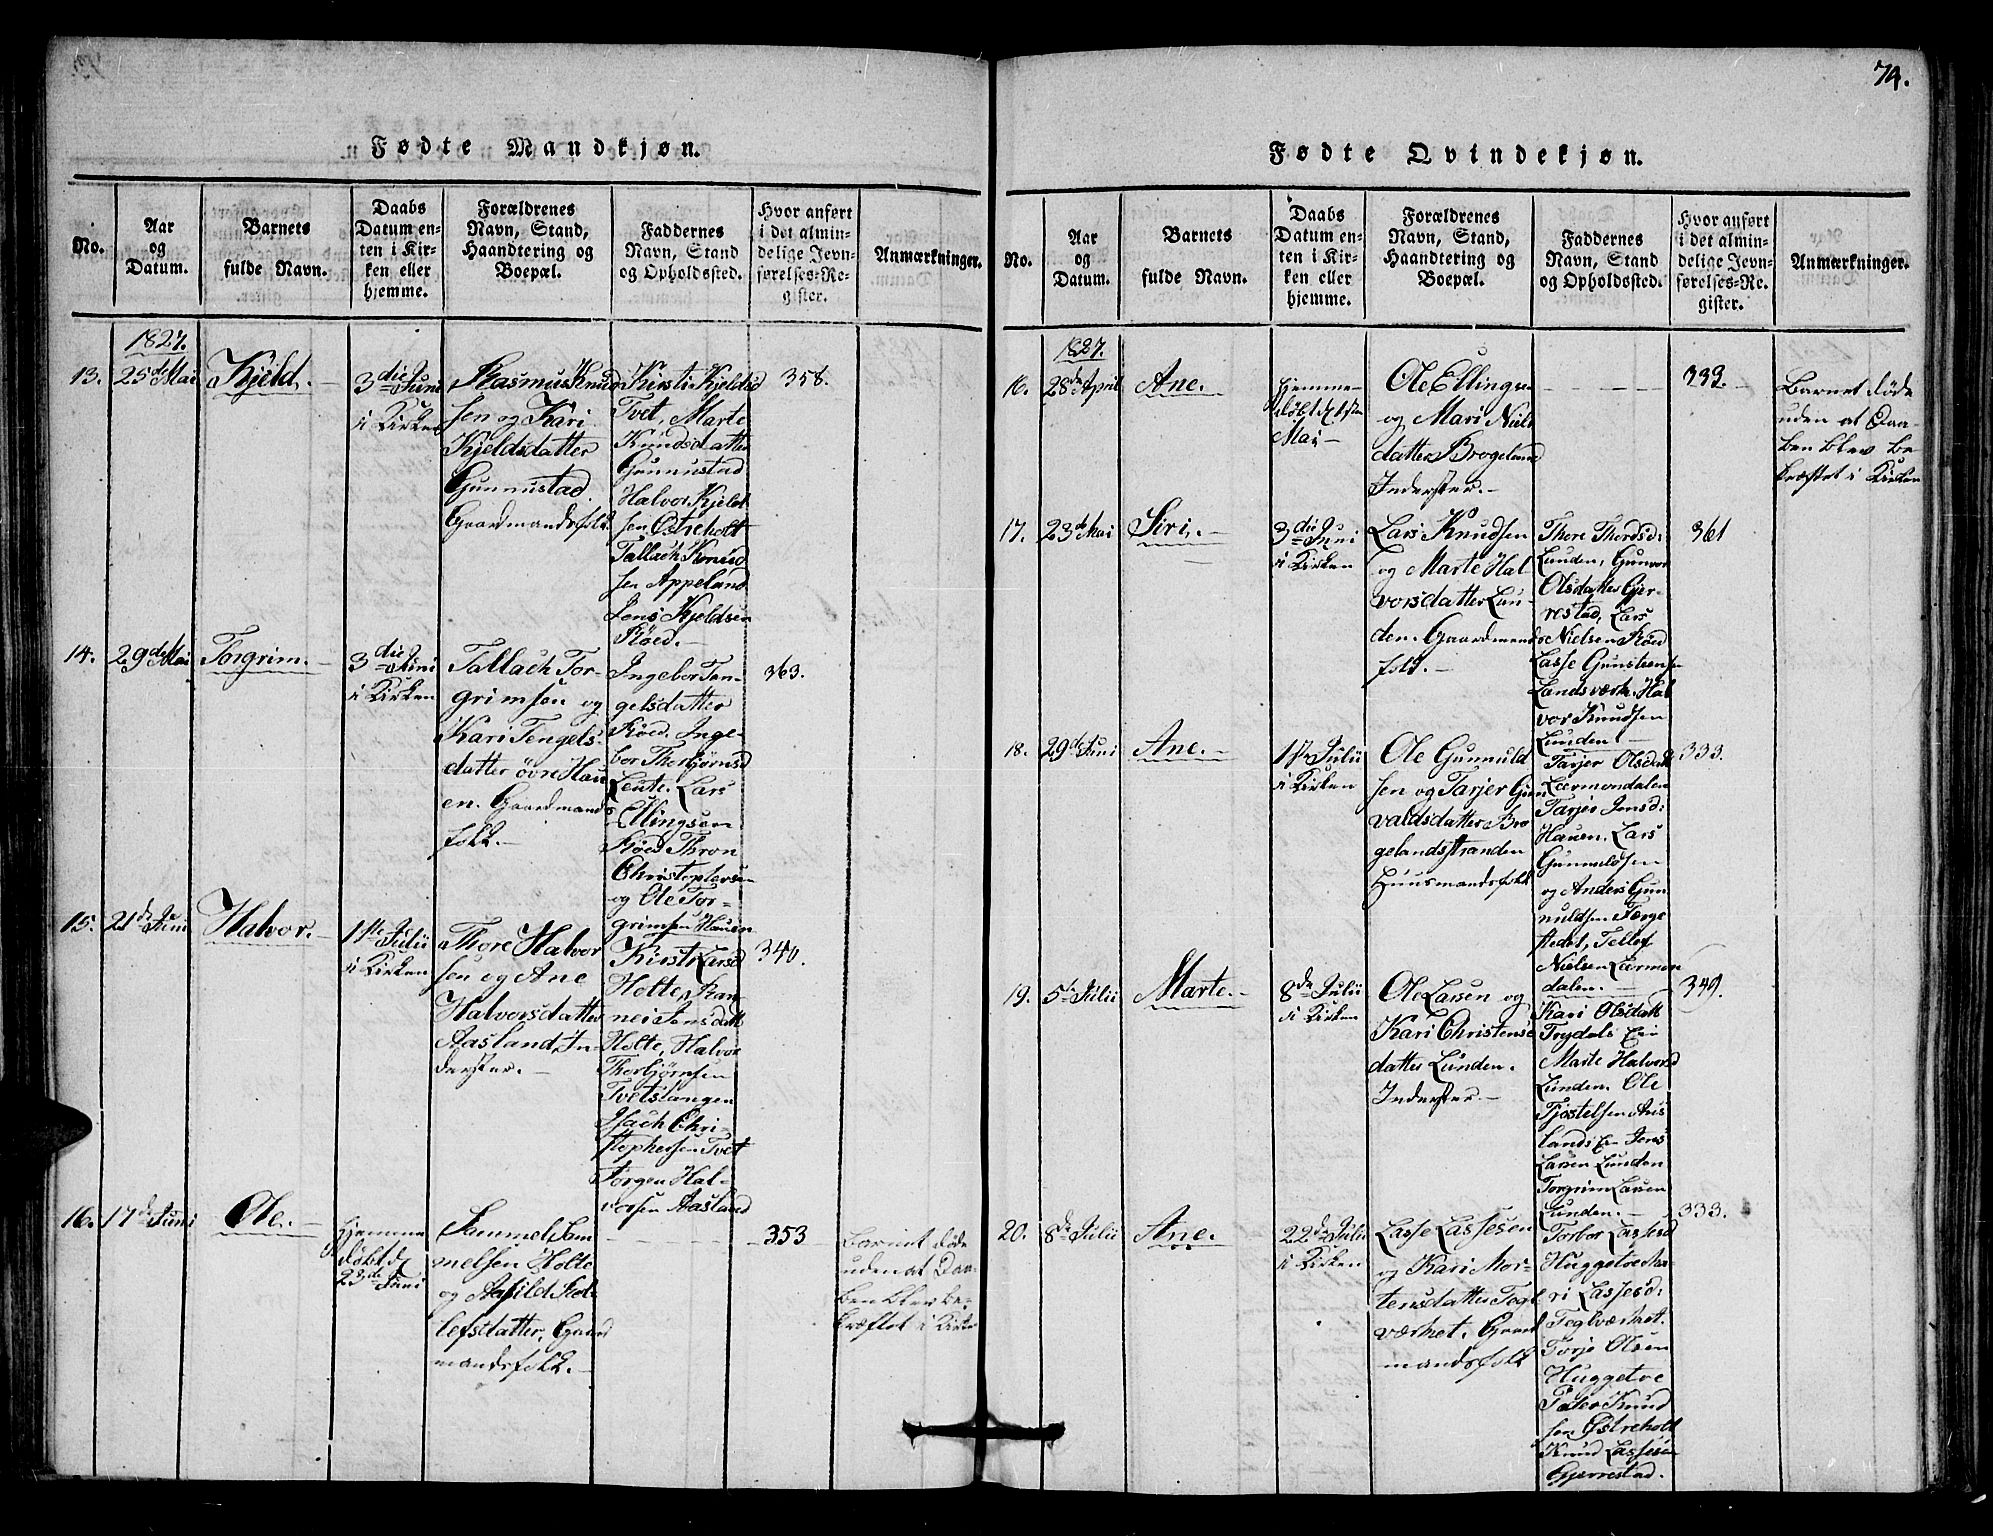 74.
Fødte Mandkjøn.
No.
Aar
og
Datum.
Barnets
fulde Navn.
Daabs
Datum en-
ten i Kir-
ken eller
hjemme.
Forældrenes
Navn, Stand,
Haandtering og
Boepæl.
Faddernes
Navn, Stand
og Opholdssted.
Hvor anført
i det almin-
delige Jevn-
førelses-Re-
gister.
Anmærkninger.
1827.
13.
25de Mai
Kjeld.
3die Juni
i Kirken
Rasmus Knud
sen og Kari
Kjeldsdatter
Gunnustad.
Gaardmandsfolk.
Kirsti Kjeldsd
Tvet, Marte
Knudsdatter
Gunnustad
Halvor Kjeld
sen Østreholt
Tallach Knud
sen Appeland
Jens Kjeldsen
Røed.
358.
14.
29de Mai
Torgrim.
3die Juni
i Kirken
Tallach Tor-
grimsen og
Kari Tengels-
datter øvre Hau
en. Gaardmands
folk.
Ingebor Ten-
gelsdatter
Røed. Inge-
bor Thorbjørnsd
Leute. Lars
Ellingsen
Røed Thron
Christophersen
og Ole Tor-
grimsen Hauen
363.
15.
21de Juni
Halvor.
1ste Julii
i Kirken
Thore Halvor
sen og Ane
Halvorsdatter
Aasland, In-
derster.
Kirsti Larsd
Holte, Ran-
nei Jensdatt
Holte, Halvor
Thorbjørnsen
Tvetstangen
Isach Chri-
stophersen Tvet
Jørgen Hal-
vorsen Aasland
340.
16.
17de Juni
Ole.
Hjemme
døbt d
23de Juni
Sammel Sam
melsen Holte
og Aasild Rol-
lefsdatter, Gaard
mandsfolk.
353
Barnet døde
uden at Daa-
ben blev be-
kræftet i Kirke
Fødte Qvindekjøn.
No.
Aar
og
Datum.
Barnets
fulde Navn.
Daabs
Datum en-
ten i Kir-
ken eller
hjemme.
Forældrenes
Navn, Stand,
Haandtering og
Boepæl.
Faddernes
Navn, Stand
og Opholdssted.
Hvor anført
i det almin-
delige Jevn-
førelses-Re-
gister.
Anmærkninger.
1827.
16.
28de April
Ane.
Hjemme-
døbt d 1ste
Mai
Ole Ellingsen
og Mari Niels
datter Brogeland
Inderster.
333.
Barnet døde
uden at Daa-
ben blev be
kræftet i Kirken
17.
23de Mai
Siri.
3die Juni
i Kirken
Lars Knudsen
og Marte Hal-
vorsdatter Lun-
den. Gaardmands
folk.
Thore Thordsd:
Lunden, Gunvor
Olsdatter Gjer-
restad, Lars
Nielsen Røed
Lasse Gunsteensen
Landsværk. Hal
vor Knudsen
Lunden.
361
18.
29de Juni
Ane.
1ste Julii
i Kirken
Ole Gunnuld
sen og Tarjer Gun
valdsdatter Bro
gelandsstranden
Huusmandsfolk
Tarjer Olsdatt
Lærmondalen
Tarjer Jensd:
Hauen, Lars
Gunnuldsen
og Anders Gun
nuldsen Færge
stedet, Tellef
Nielsen Lærmon
dalen.
333.
19.
5te Julii
Marte.
8de Julii
i Kirken
Ole Larsen og
Kari Christens
datter Lunden.
Inderster.
Kari Olsdatt
Trydals Eie
Marte Halvorsd
Lunden. Ole
Tjostelsen Aas
lands Eie Jens
Larsen Lunden
Torgrim Larsen
Lunden.
349.
20.
8de Julii
Ane.
22de Julii
i Kirken
Lasse Lassesen
og Kari Mor-
tensdatter Tegl
værket. Gaard
mandsfolk
Torbor Lassesd
Huggetvo Ma-
ri Lassesd:
Teglværket.
Torje Olsen
Huggetvo
Peder Knud
sen Østreholt
Knud Lassesen
Gjerrestad.
333.